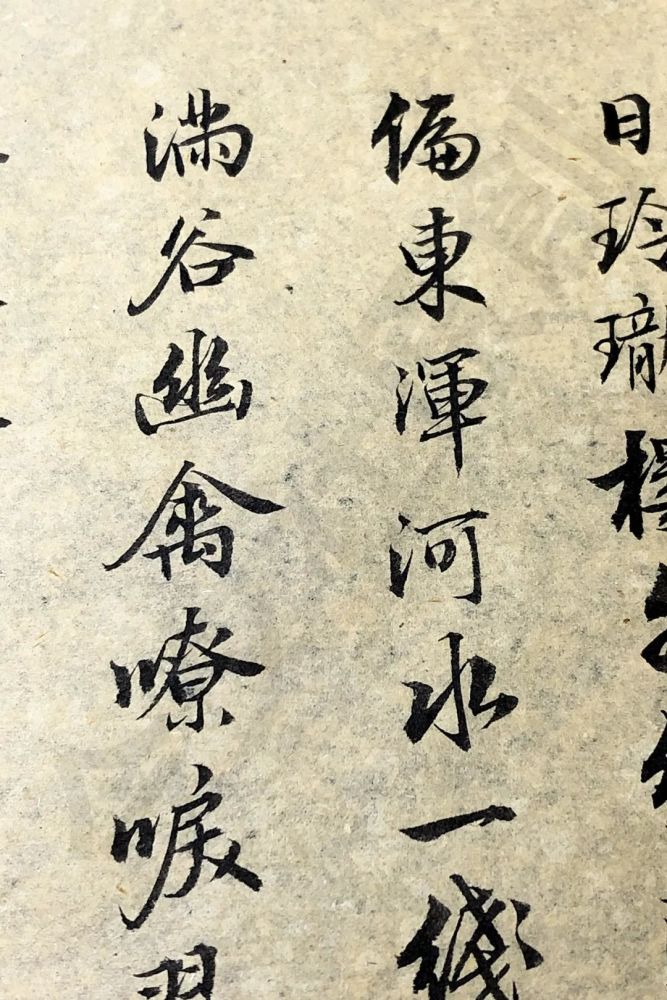 日玲瓏樓
偏東渾河水一綫
滿谷幽禽嘹唳